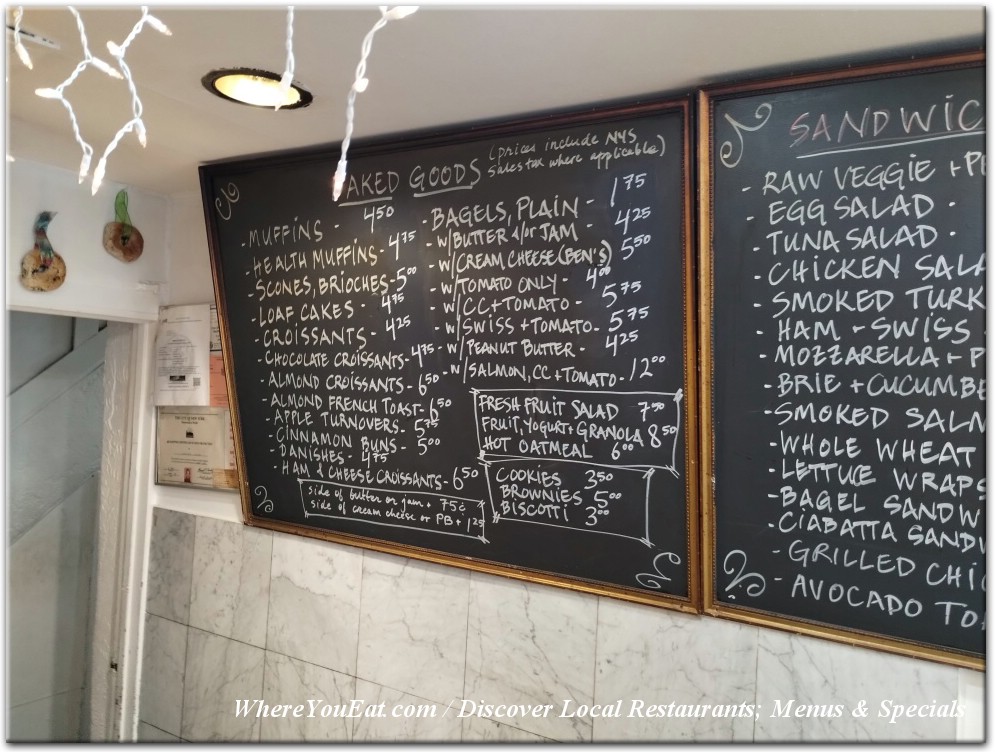 BAKED GOODS (prices include NYS
sales tax where applicable)
- MUFFINS - 4 50
- HEALTH MUFFINS - 4 75
- SCONES, BRIOCHES - 5 00
- LOAF CAKES - 4 75
- CROISSANTS - 4 25
- CHOCOLATE CROISSANTS - 4 75
- ALMOND CROISSANTS - 6 50
- ALMOND FRENCH TOAST - 6 50
- APPLE TURNOVERS -
- CINNAMON BUNS - 5 00
- DANISHES - 4 75
- HAM & CHEESE CROISSANTS - 6 50
side of butter or jam + 75¢
side of cream cheese or PB + 1 25
- BAGELS, PLAIN - 1 75
- W/ BUTTER &/or JAM - 4 25
- W/ CREAM CHEESE (BEN'S) 5 50
- W/ TOMATO ONLY - 4 00
- W/ CC + TOMATO - 5 75
- W/ SWISS + TOMATO - 5 75
- W/ PEANUT BUTTER - 4 25
- W/ SALMON, CC + TOMATO - 12 00
FRESH FRUIT SALAD 7 50
FRUIT, YOGURT + GRANOLA 8 50
HOT OATMEAL 6 00
COOKIES 2 50
BROWNIES 5 00
BISCOTTI 3 00
SANDWIC
- RAW VEGGIE + PE
- EGG SALAD -
- TUNA SALAD -
- CHICKEN SALA
- SMOKED TURK
- HAM + SWISS
- MOZZARELLA + P
- BRIE + CUCUMBE
- SMOKED SALM
- WHOLE WHEAT
- LETTUCE WRAPS
- BAGEL SANDW
- CIABATTA SANDW
- GRILLED CHIC
- AVOCADO TO
WhereYouEat.com / Discover Local Restaurants; Menus & Specials